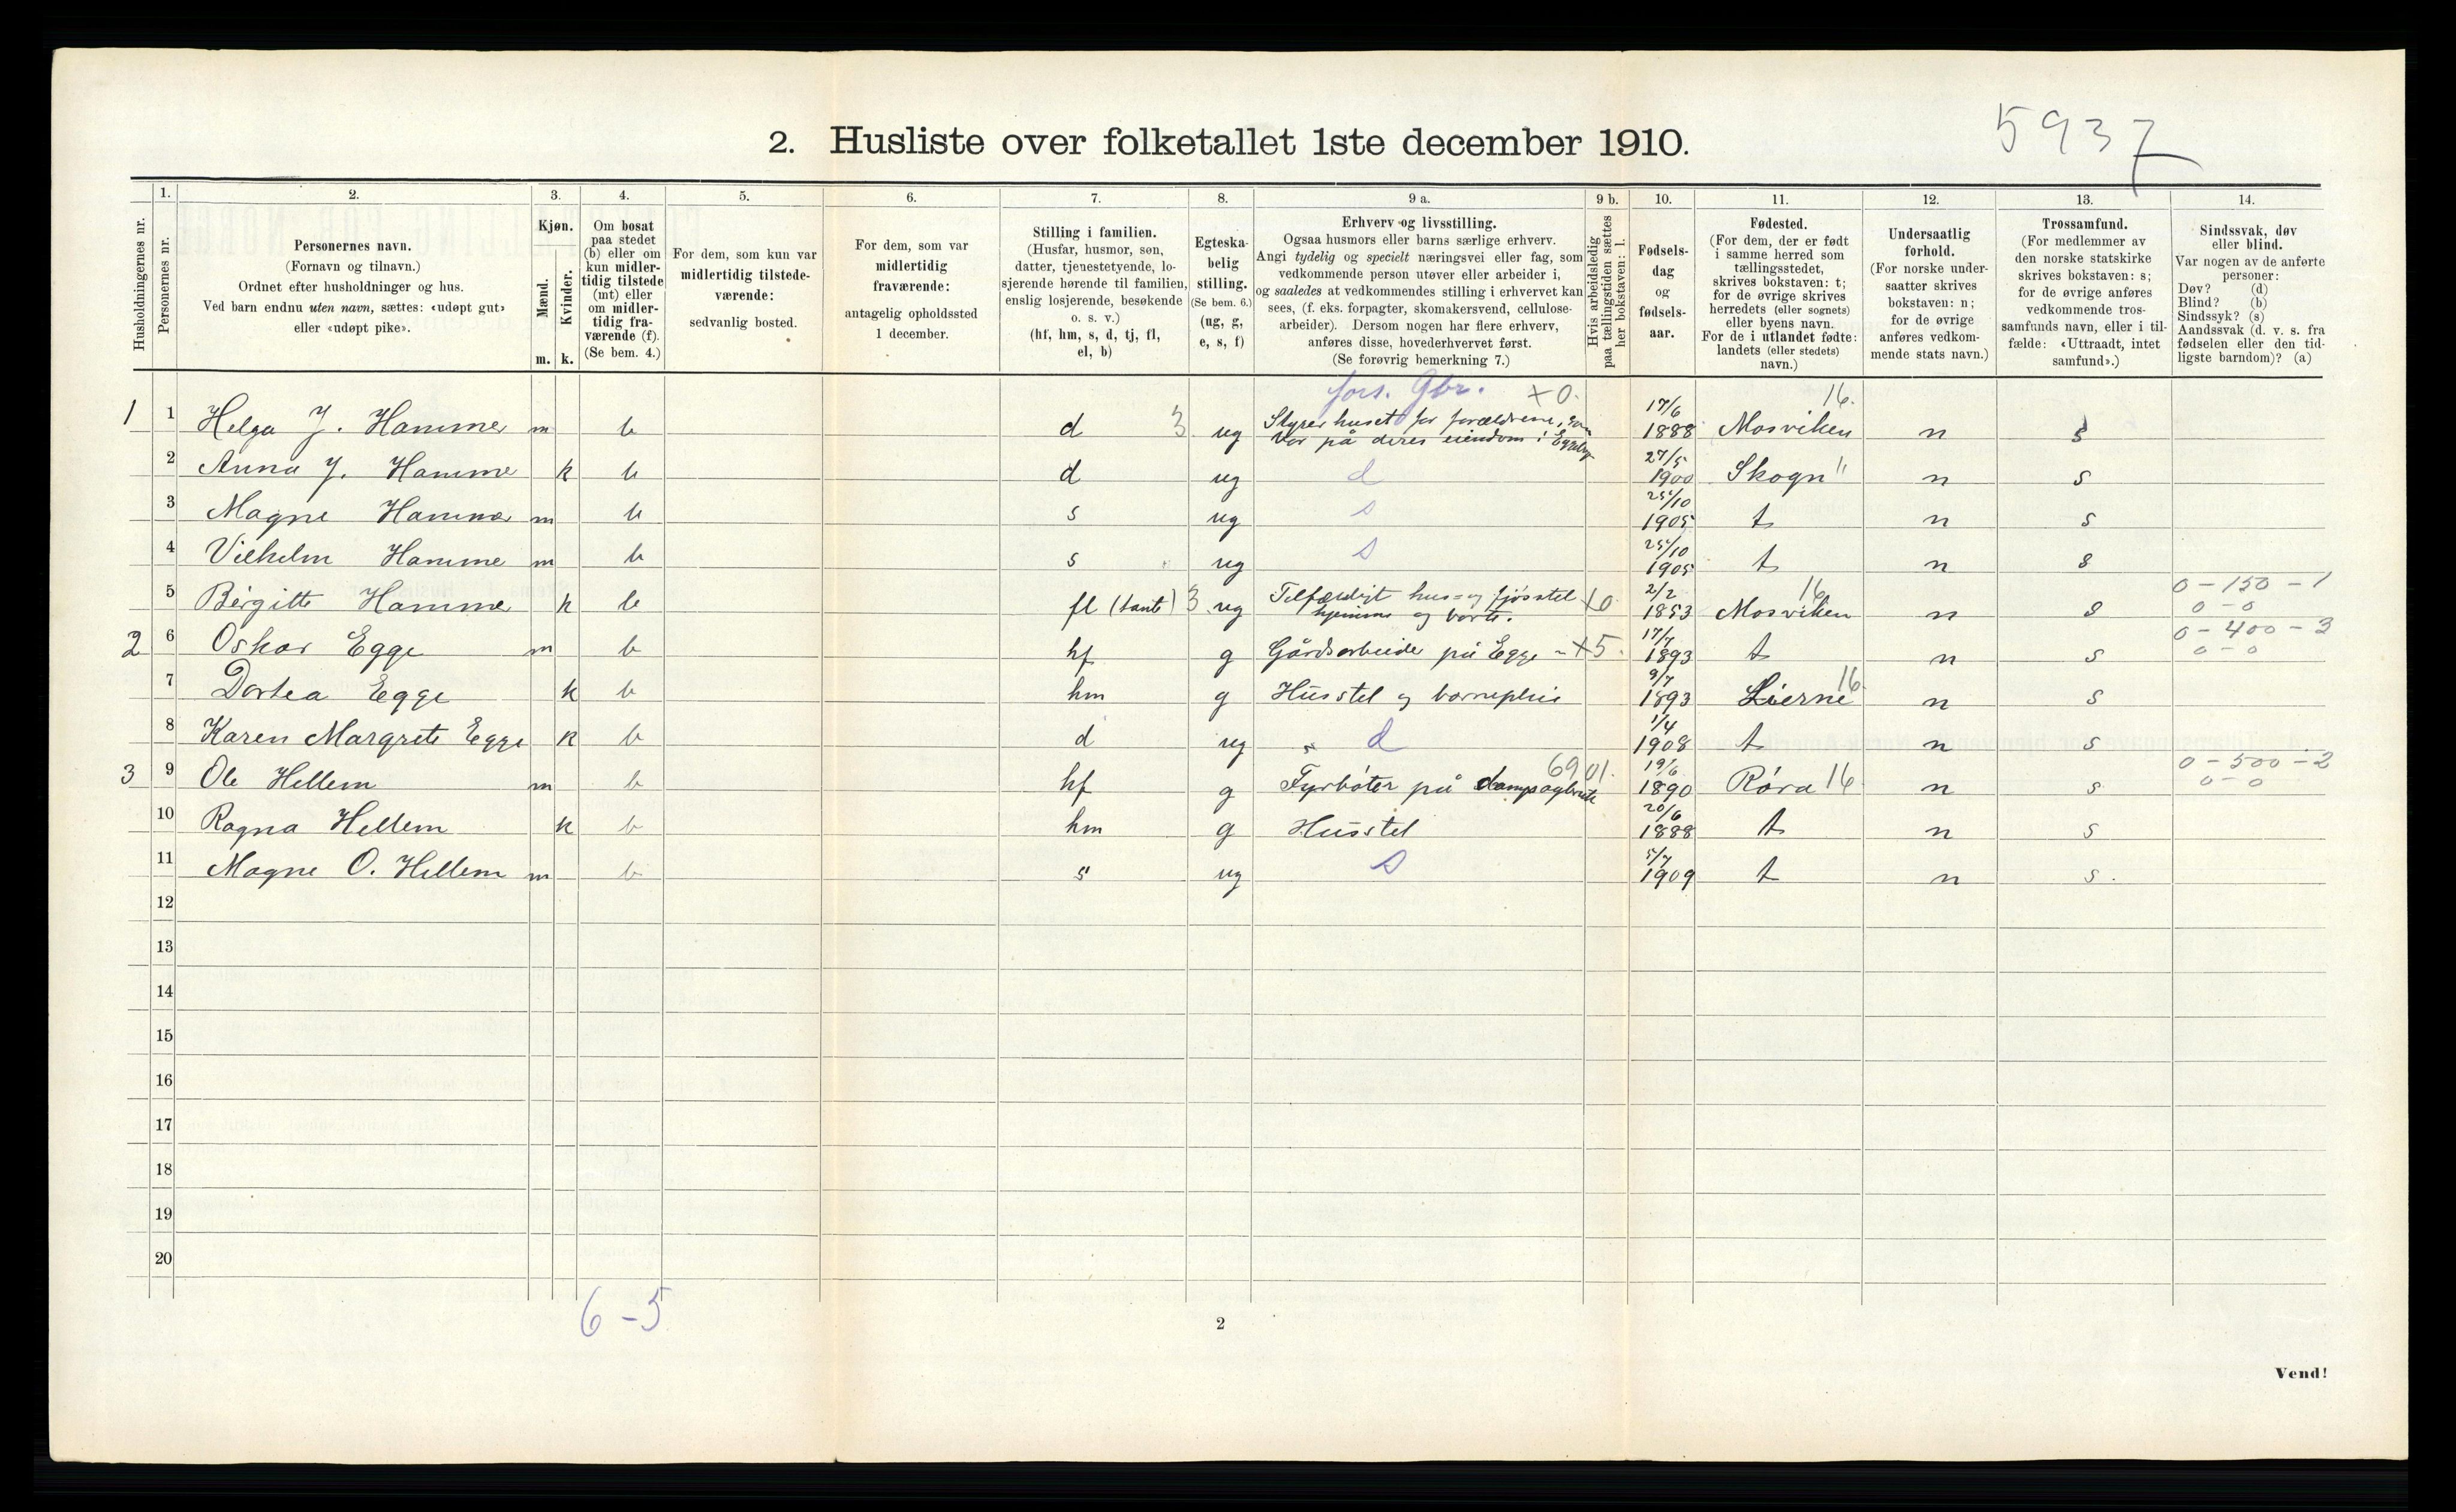 5937
2. Husliste over folketallet 1ste december 1910.
Husholdningernes nr.
1.
Personernes nr.
2.
Personernes navn.
(Fornavn og tilnavn.)
Ordnet efter husholdninger og hus.
Ved barn endnu uten navn, sættes: «udøpt gut»
eller «udøpt pike».
3.
Kjøn.
Mænd.
Kvinder.
m. k.
4.
Om bosat
paa stedet
(b) eller om
kun midler-
tidig tilstede
(mt) eller
om midler-
tidig fra-
værende (f).
(Se bem. 4.)
5.
For dem, som kun var
midlertidig tilstede-
værende:
sedvanlig bosted.
6.
For dem, som var
midlertidig
fraværende:
antagelig opholdssted
1 december.
7.
Stilling i familien.
(Husfar, husmor, søn,
datter, tjenestetyende, lo-
sjerende hørende til familien,
enslig losjerende, besøkende
o. s. v.)
(hf, hm, s, d, tj, fl,
el, b)
8.
Egteska-
belig
stilling.
(Se bem. 6.)
(ug, g,
e, s, f)
9 a.
Erhverv og livsstilling.
Ogsaa husmors eller barns særlige erhverv.
Angi tydelig og specielt næringsvei eller fag, som
vedkommende person utøver eller arbeider i,
og saaledes at vedkommendes stilling i erhvervet kan
sees, (f. eks. forpagter, skomakersvend, cellulose-
arbeider). Dersom nogen har flere erhverv,
anføres disse, hovederhvervet først.
(Se forøvrig bemerkning 7.)
9 b.
Hvis arbeidsledig
paa tællingstiden sættes
her bokstaven: l.
10.
Fødsels-
dag
og
fødsels-
aar.
11.
Fødested.
(For dem, der er født
i samme herred som
tællingsstedet,
skrives bokstaven: t;
for de øvrige skrives
herredets (eller sognets)
eller byens navn.
For de i utlandet fødte:
landets (eller stedets)
navn.)
12.
Undersaatlig
forhold.
(For norske under-
saatter skrives
bokstaven: n;
for de øvrige
anføres vedkom-
mende stats navn.)
13.
Trossamfund.
(For medlemmer av
den norske statskirke
skrives bokstaven: s;
for de øvrige anføres
vedkommende tros-
samfunds navn, eller i til-
fælde: «Uttraadt, intet
samfund».)
14.
Sindssvak, døv
eller blind.
Var nogen av de anførte
personer:
Døv? (d)
Blind? (b)
Sindssyk? (s)
Aandssvak (d. v. s. fra
fødselen eller den tid-
ligste barndom)? (a)
fors. Gbr. +0. 16.
1 1 Helga J. Hammer m b d 3 ug Styrer huset for forældrene, som 17/6 1888 Mosviken n s
bor på deres eiendom i Eggeby
2 Anna J. Hamme k b d ug d 27/5 1900 Skogn " n s
3 Magne Hammer m b s ug s 25/10 1905 t n s
4 Vilhelm Hamme m b s ug s 25/10 1905 t n s
5 Birgitte Hamme k b fl (tante) 3 ug Tilfældigt hus- og fjøsstel +0 2/2 1853 Mosviken 16 n s 0-150-1
hjemme og borte. 0-0
2 6 Oskar Egge m b hf g Gårdsarbeide på Egge - +5. 17/7 1893 t n s 0-400-3
0-0
7 Dortea Egge k b hm g Husstel og barnepleie 9/7 1893 Lierne 16 n s
8 Karen Margrete Egge k b d ug d 1/4 1908 t n s
3 9 Ole Hellem m b hf g Fyrbøter på dampsagbruk 6901. 19/6 1890 Røra 16 n s 0-500-2
0-0
10 Ragna Hellem k b hm g Husstel 20/6 1888 t n s
11 Magne O. Hellem m b s ug s 5/7 1909 t n s.
12
13
14
15
16
17
18
19
20
6-5
2
Vend!